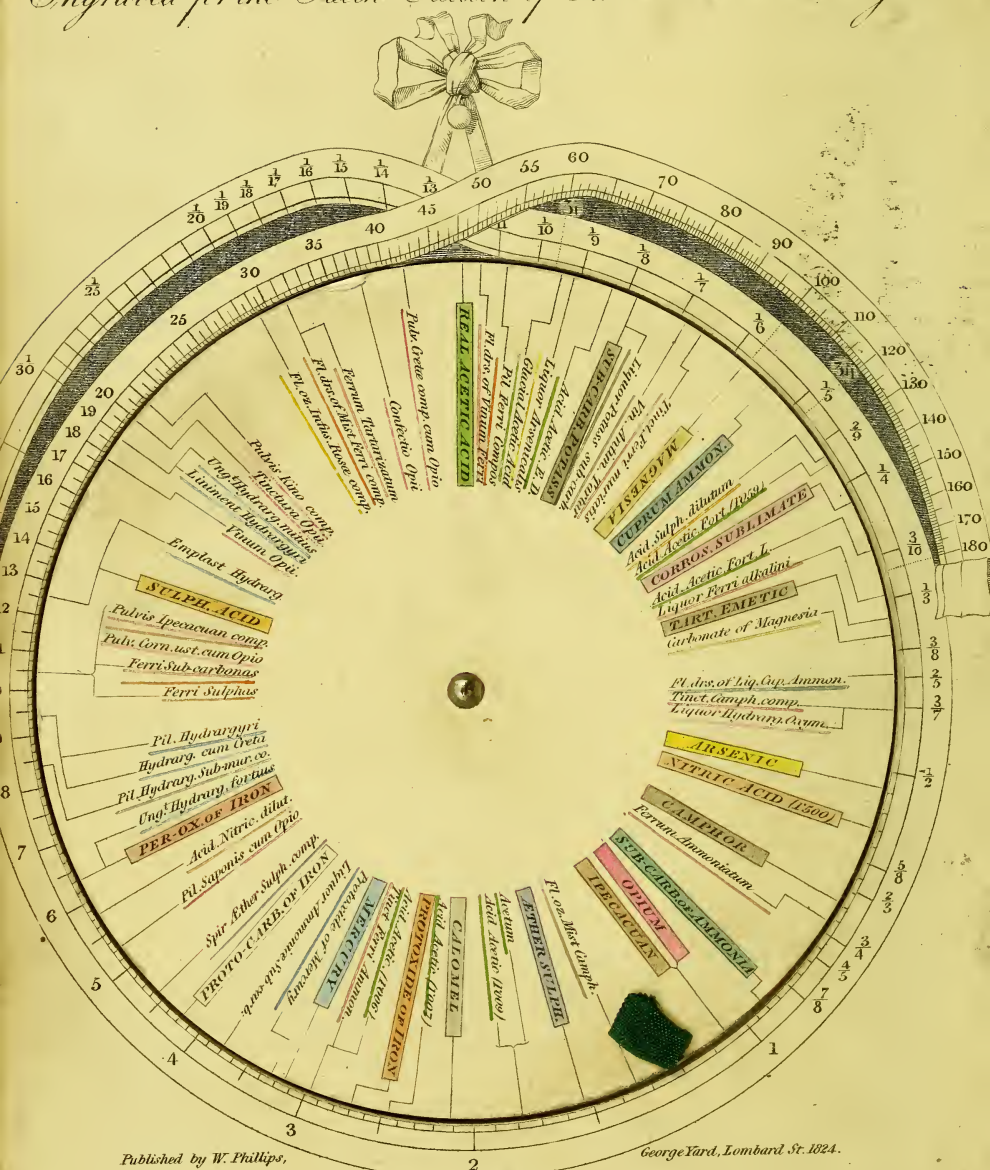 Engraved for the
1/13
50
55
60
70
80
90
100
110
120
130
140
150
160
170
180
1/14
1/15
1/16
1/17
1/18
1/19
1/20
1/25
30
25
20
19
18
17
16
15
14
13
30
35
40
45
11
1/10
1/9
1/8
1/7
1/6
1/5
2/9
1/4
3/10
1/3
3/8
2/5
3/7
1/2
5/8
2/3
3/4
4/5
7/8
1
2
3
4
5
6
7
8
REAL ACETIC ACID
Fl.drs. of Vinum Ferri
Pil. Ferri Compos
Glacial Acetic Acid
Liquor Arsenicalis
Acid. Acetic B.
SUB-CARB POTASS
Liquor Potass sub-carb
Vin. Antim. Tartar
Tinct Ferri muriatis
MAGNESIA
CUPRUM AMMON.
Acid Sulph. dilutum
Acid Acetic Fort (1059)
CORROS. SUBLIMATE
Acid Acetic Fort L.
Liquor Ferri alkalini
TART. EMETIC
Carbonate of Magnesia
Fl. drs. of Liq. Cup. Ammon.
Tinct. Camph. comp.
Liquor Hydrarg. Oxym.
ARSENIC
NITRIC ACID (1'500)
CAMPHOR
Ferrum Ammoniatum
SUB-CARB OF AMMONIA
OPIUM
IPECACUAN
Fl. oz. Mist Camph.
ÆTHER SULPH.
Acetum
Acid Acetic (1009)
CALOMEL
Acid Acetic (1007)
PROTOXIDE OF IRON
Acid Acetic (1006)
Tinct Ferri Ammon
MERCURY
Protoxide of Mercury
Liquor Ammoniæ Sub-carb:
PROTO-CARB. OF IRON
Spir Æther Sulph. comp.
Pil. Saponis cum Opio
Acid Nitric. dilut.
PER-OX. OF IRON
Ungt Hydrarg. fortius
Pil Hydrarg. Sub-mur. co.
Hydrarg. cum Creta
Pil. Hydrargyri
Ferri Sulphas
Ferri Sub-carbonas
Pulv. Corn. ust. cum Opio
Pulvis Ipecacuan comp.
SULPH. ACID
Emplast Hydrarg
Vinum Opii.
Liniment Hydrargyri
Ungt Hydrarg. mitius
Tinctura Opii
Pulvis Kino comp.
Fl. oz. Infus. Rosæ comp.
Fl. drs. of Mist Ferri comp.
Ferrum Tartarizatum
Confectio Opii
Pulv. Cretæ comp. cum Opio
Published by W. Phillips,
George Yard, Lombard St. 1824.